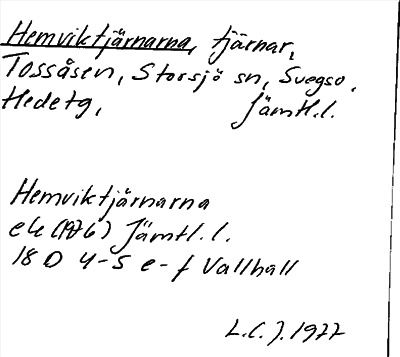 Hemviktjärnarna, tjärnar,
Tossåsen, Storsjö sn, Svegso,
Hedetg, Jämtl.l.
Hemviktjärnarna
ek (1976) Jämtl.l.
18 D 4-5 e-f Vallhall
L.C.J. 1977